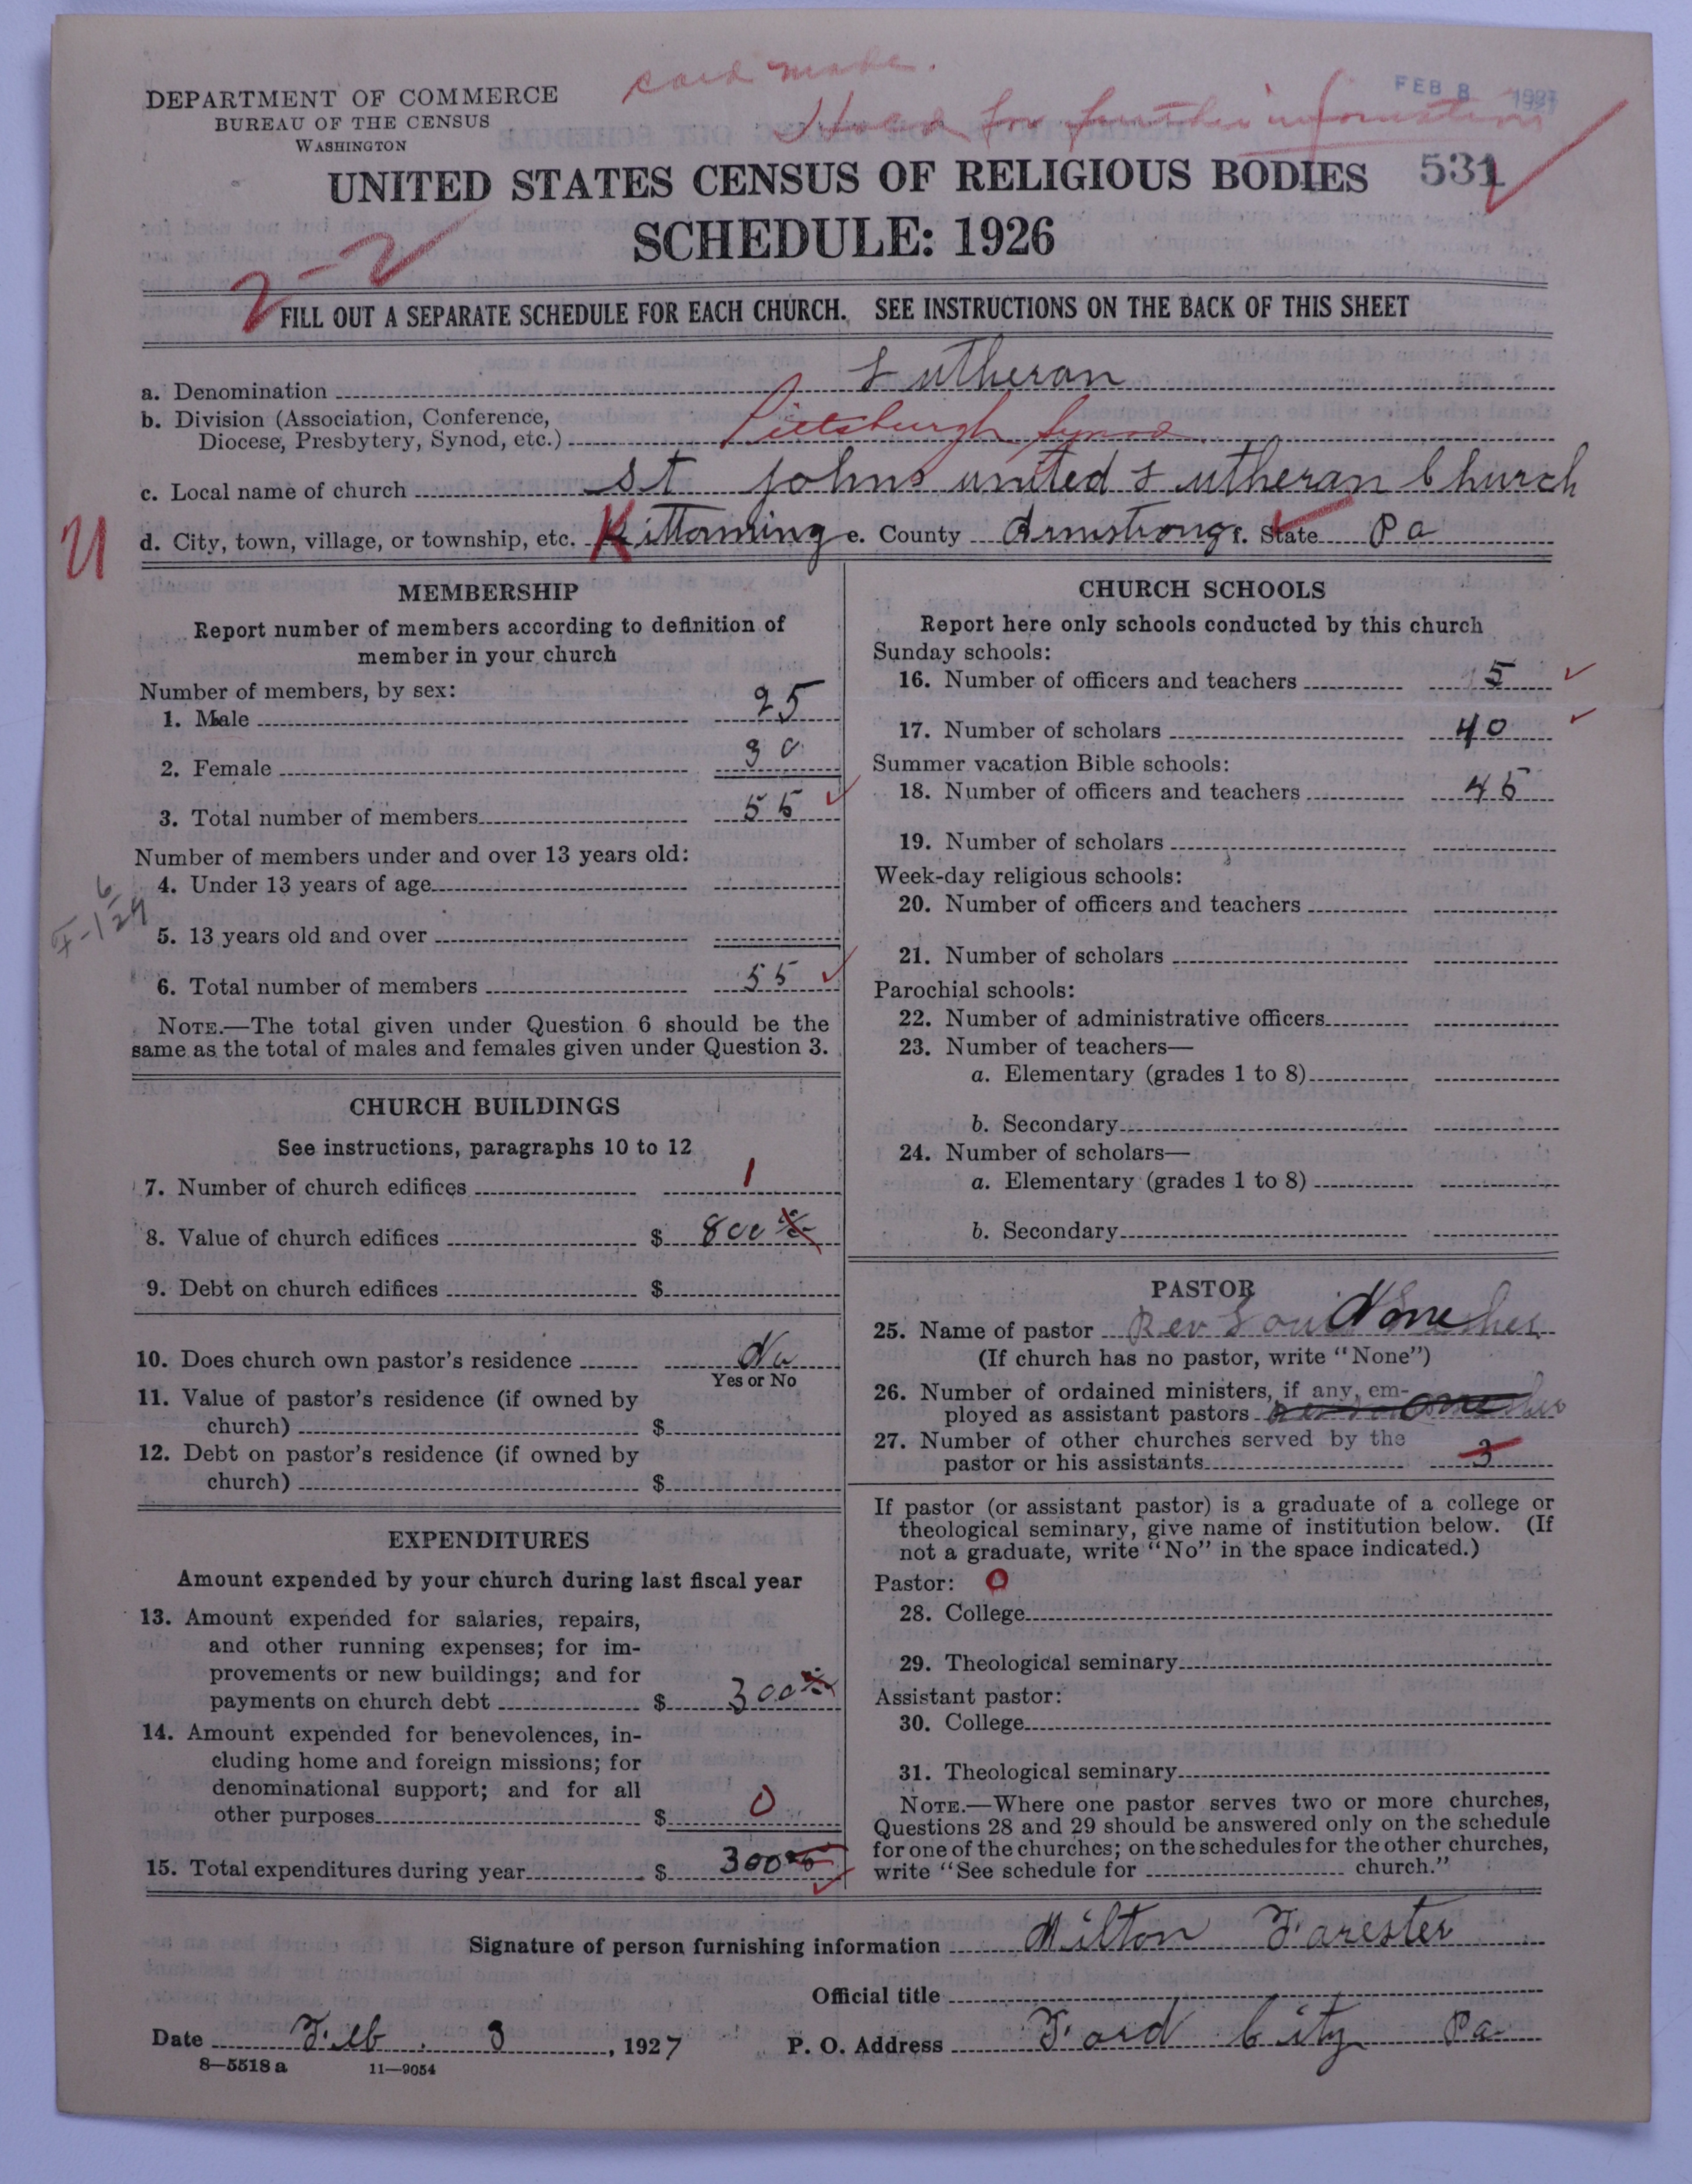 card made.
Hold for further information
FEB 8 1927
DEPARTMENT OF COMMERCE
BUREAU OF THE CENSUS
WASHINGTON
UNITED STATES CENSUS OF RELIGIOUS BODIES 531
SCHEDULE: 1926
2-2
FILL OUT A SEPARATE SCHEDULE FOR EACH CHURCH. SEE INSTRUCTIONS ON THE BACK OF THIS SHEET
a. Denomination Lutheran
b. Division (Association, Conference,
Diocese, Presbytery, Synod, etc.) Pittsburgh Synod
c. Local name of church St Johns united Lutheran Church
U
d. City, town, village, or township, etc. Kittanning e. County Armstrong f. State Pa
MEMBERSHIP
Report number of members according to definition of
member in your church
Number of members, by sex:
1. Male 25
2. Female 30
3. Total number of members 55
Number of members under and over 13 years old:
4. Under 13 years of age
5. 13 years old and over
6. Total number of members 55
NOTE.—The total given under Question 6 should be the
same as the total of males and females given under Question 3.
CHURCH BUILDINGS
See instructions, paragraphs 10 to 12
7. Number of church edifices 1
8. Value of church edifices $ 800
9. Debt on church edifices $
10. Does church own pastor's residence No
Yes or No
11. Value of pastor's residence (if owned by
church) $
12. Debt on pastor's residence (if owned by
church) $
EXPENDITURES
Amount expended by your church during last fiscal year
13. Amount expended for salaries, repairs,
and other running expenses; for im-
provements or new buildings; and for
payments on church debt $ 300
14. Amount expended for benevolences, in-
cluding home and foreign missions; for
denominational support; and for all
other purposes $ 0
15. Total expenditures during year $ 300
CHURCH SCHOOLS
Report here only schools conducted by this church
Sunday schools:
16. Number of officers and teachers 5
17. Number of scholars 40
Summer vacation Bible schools:
18. Number of officers and teachers 45
19. Number of scholars
Week-day religious schools:
20. Number of officers and teachers
21. Number of scholars
Parochial schools:
22. Number of administrative officers
23. Number of teachers—
a. Elementary (grades 1 to 8)
b. Secondary
24. Number of scholars—
a. Elementary (grades 1 to 8)
b. Secondary
PASTOR
25. Name of pastor Rev None
(If church has no pastor, write "None")
26. Number of ordained ministers, if any, em-
ployed as assistant pastors
27. Number of other churches served by the
pastor or his assistants 3
If pastor (or assistant pastor) is a graduate of a college or
theological seminary, give name of institution below. (If
not a graduate, write "No" in the space indicated.)
Pastor: 0
28. College
29. Theological seminary
Assistant pastor:
30. College
31. Theological seminary
NOTE.—Where one pastor serves two or more churches,
Questions 28 and 29 should be answered only on the schedule
for one of the churches; on the schedules for the other churches,
write "See schedule for church."
Signature of person furnishing information Milton Farester
Official title
Date Feb. 3, 1927 P. O. Address Ford City Pa
8—5518 a 11—9054